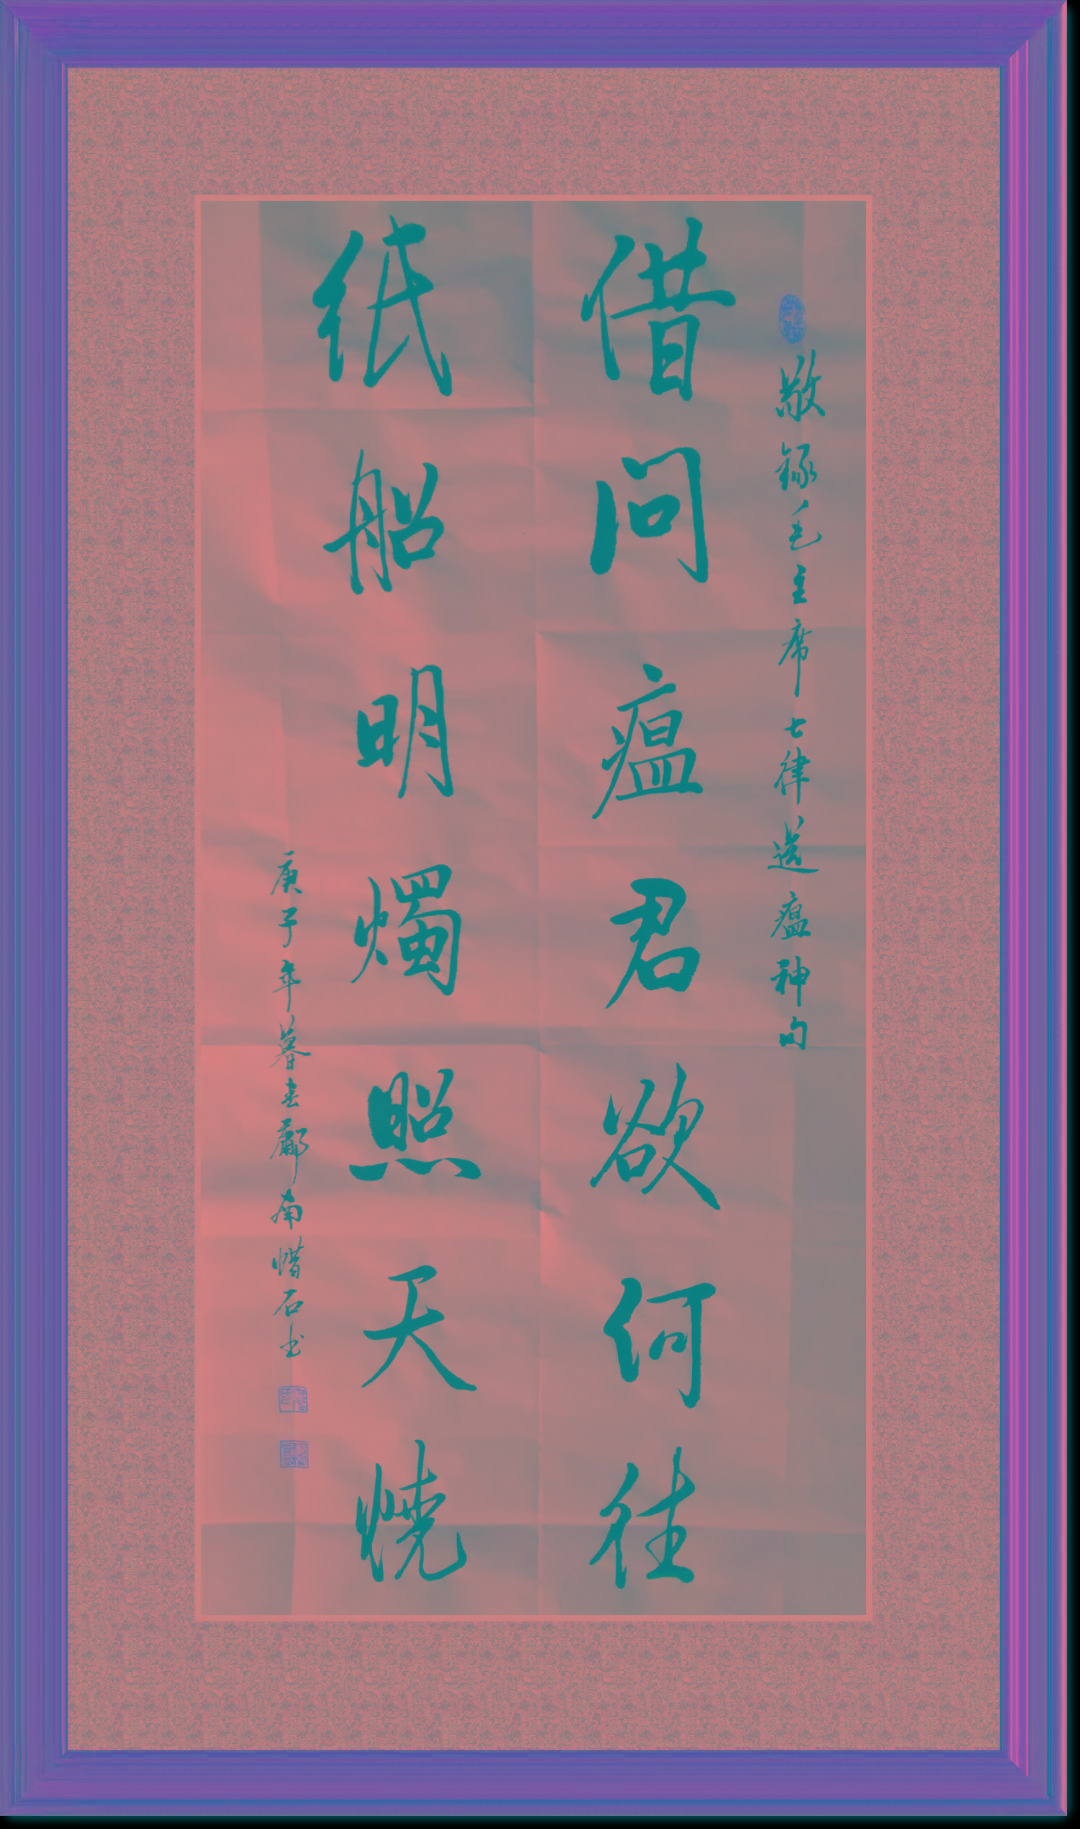 敬録毛主席七律送瘟神句
借问瘟君欲何往
纸船明燭照天烧
庚子年暮春酈南惜石书